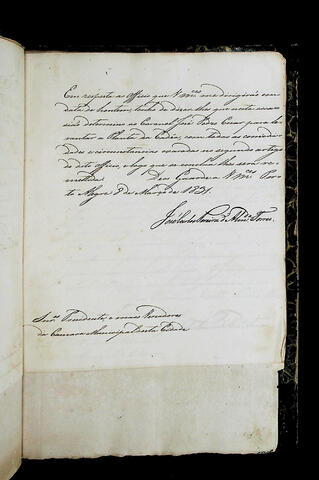 Em resposta ao Officio que V. mces me dirigirão com
data de hontem, tenho de dizer-lhes que nesta occa-
sião determino ao Coronel José Pedro Cesar para le-
vantar a Planta da Cadêa, com todas as commodi-
dades e circunstancias exaradas no segundo artigo
do dito officio, e logo que se conclua lhes será re-
mettida. Deos Guarde a V. mces Por-
to Alegre 8 de Março de 1831.
José Carlos d' Almda Torres
Snres Presidente, e mais Vereadores
da Camara Municipal desta Cidade